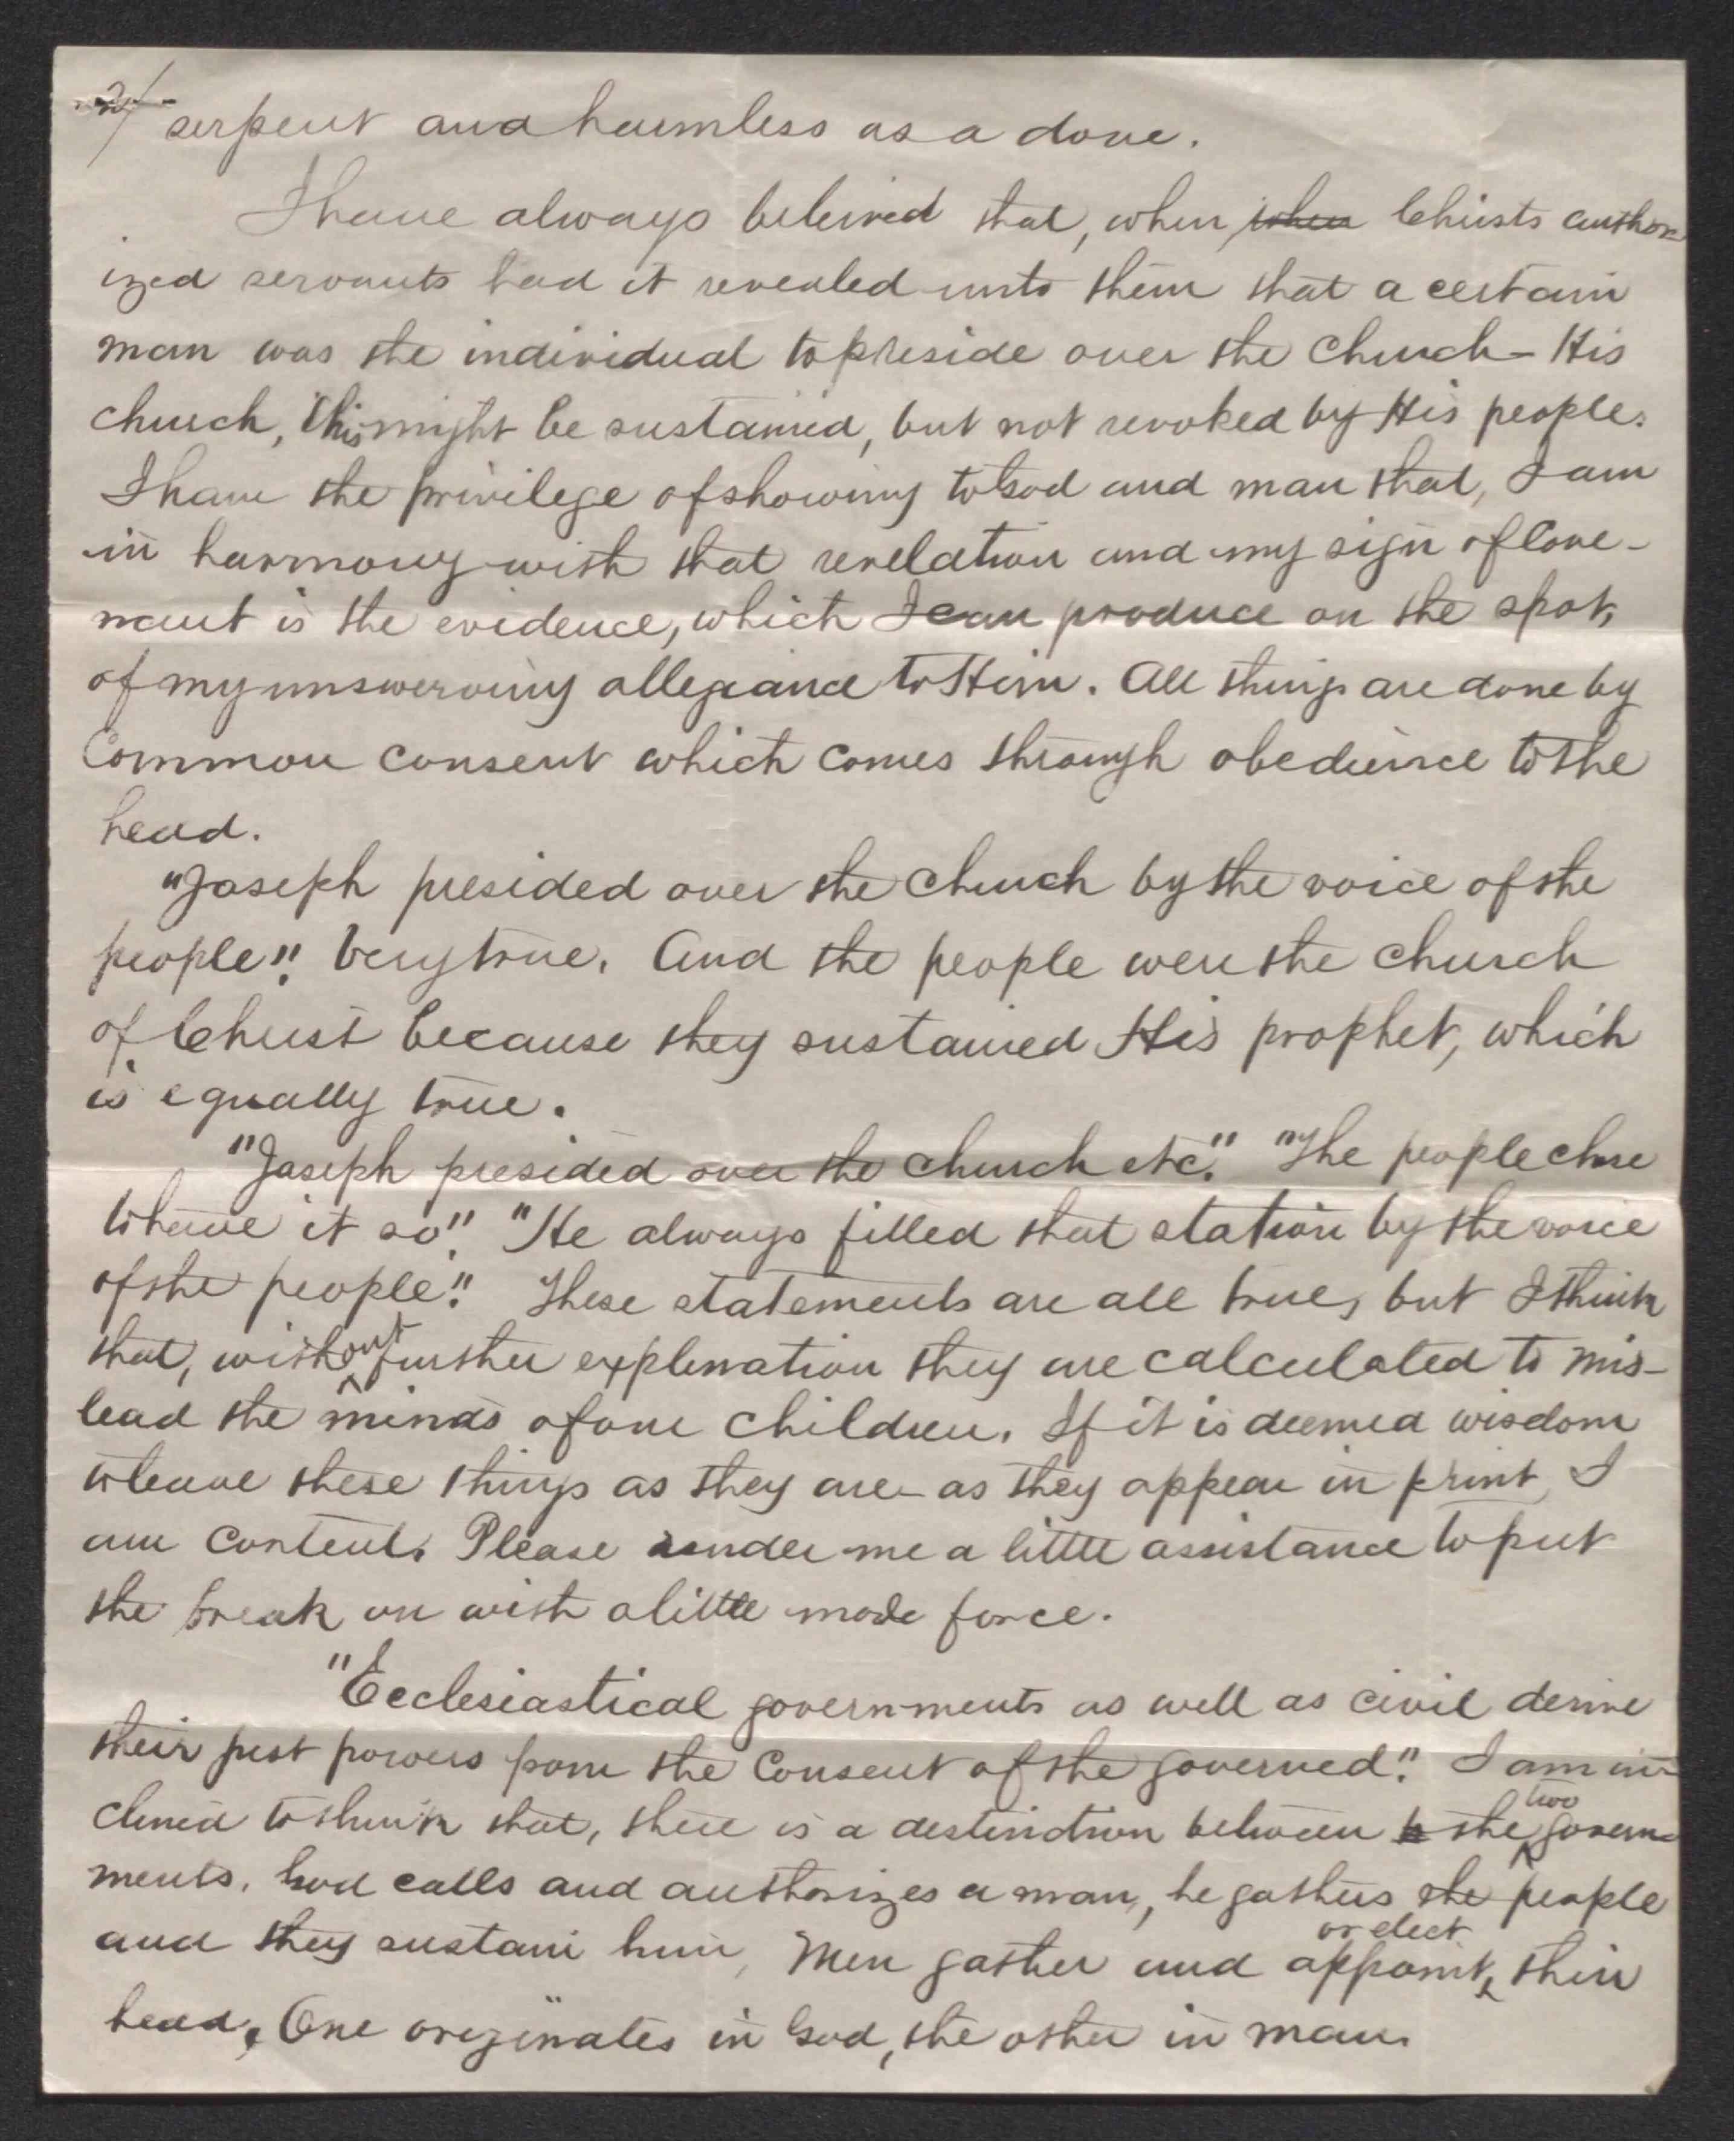 2/ serpent and harmless as a dove.
I have always beleived that, when when Christs author-
ized servants had it revealed unto them that a certain
man was the individual to preside over the Church - His
church, this might be sustained, but not revoked by His people.
I have the privilege of showing to God and man that, I am
in harmony with that revelation and my sign of cove-
nant is the evidence, which I can produce on the spot,
of my unswerving allegiance to Him. All things are done by
Common consent which comes through obedience to the
head.
"Joseph presided over the church by the voice of the
people". Very true. And the people were the church
of Christ because they sustained His prophet, which
is equally true.
"Joseph presided over the church etc." "The people chose
to have it so". "He always filled that station by the voice
of the people." These statements are all true, but I think
that, without further explenation they are calculated to mis-
lead the minds of our children. If it is deemed wisdom
to leave these things as they are - as they appear in print, I
am content. Please render me a little assistance to put
the break on with a little more force.
"Ecclesiastical governments as well as civil derive
their just powers from the Consent of the governed." I am in-
clined to think that, there is a destinction between the two govern-
ments. God calls and authorizes a man, he gathers the people
and they sustain him, Men gather and appoint or elect their
head. One originates in God, the other in man.